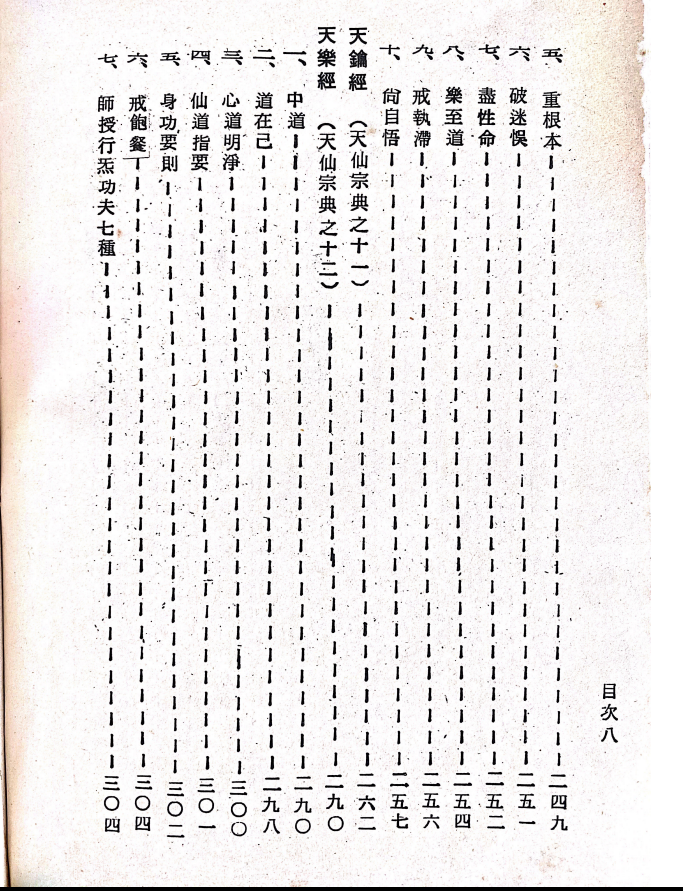 目次八
五、重根本-----二四九
六、破迷悞-----二五一
七、盡性命-----二五二
八、樂至道-----二五四
九、戒執滯-----二五六
十、尙自悟-----二五七
天鑰經（天仙宗典之十一）-----二六二
天樂經（天仙宗典之十二）-----二九〇
一、中道-----二九〇
二、道在己-----二九八
三、心道明淨-----三〇〇
四、仙道指要-----三〇一
五、身功要則-----三〇二
六、戒飽餐-----三〇四
七、師授行炁功夫七種-----三〇四